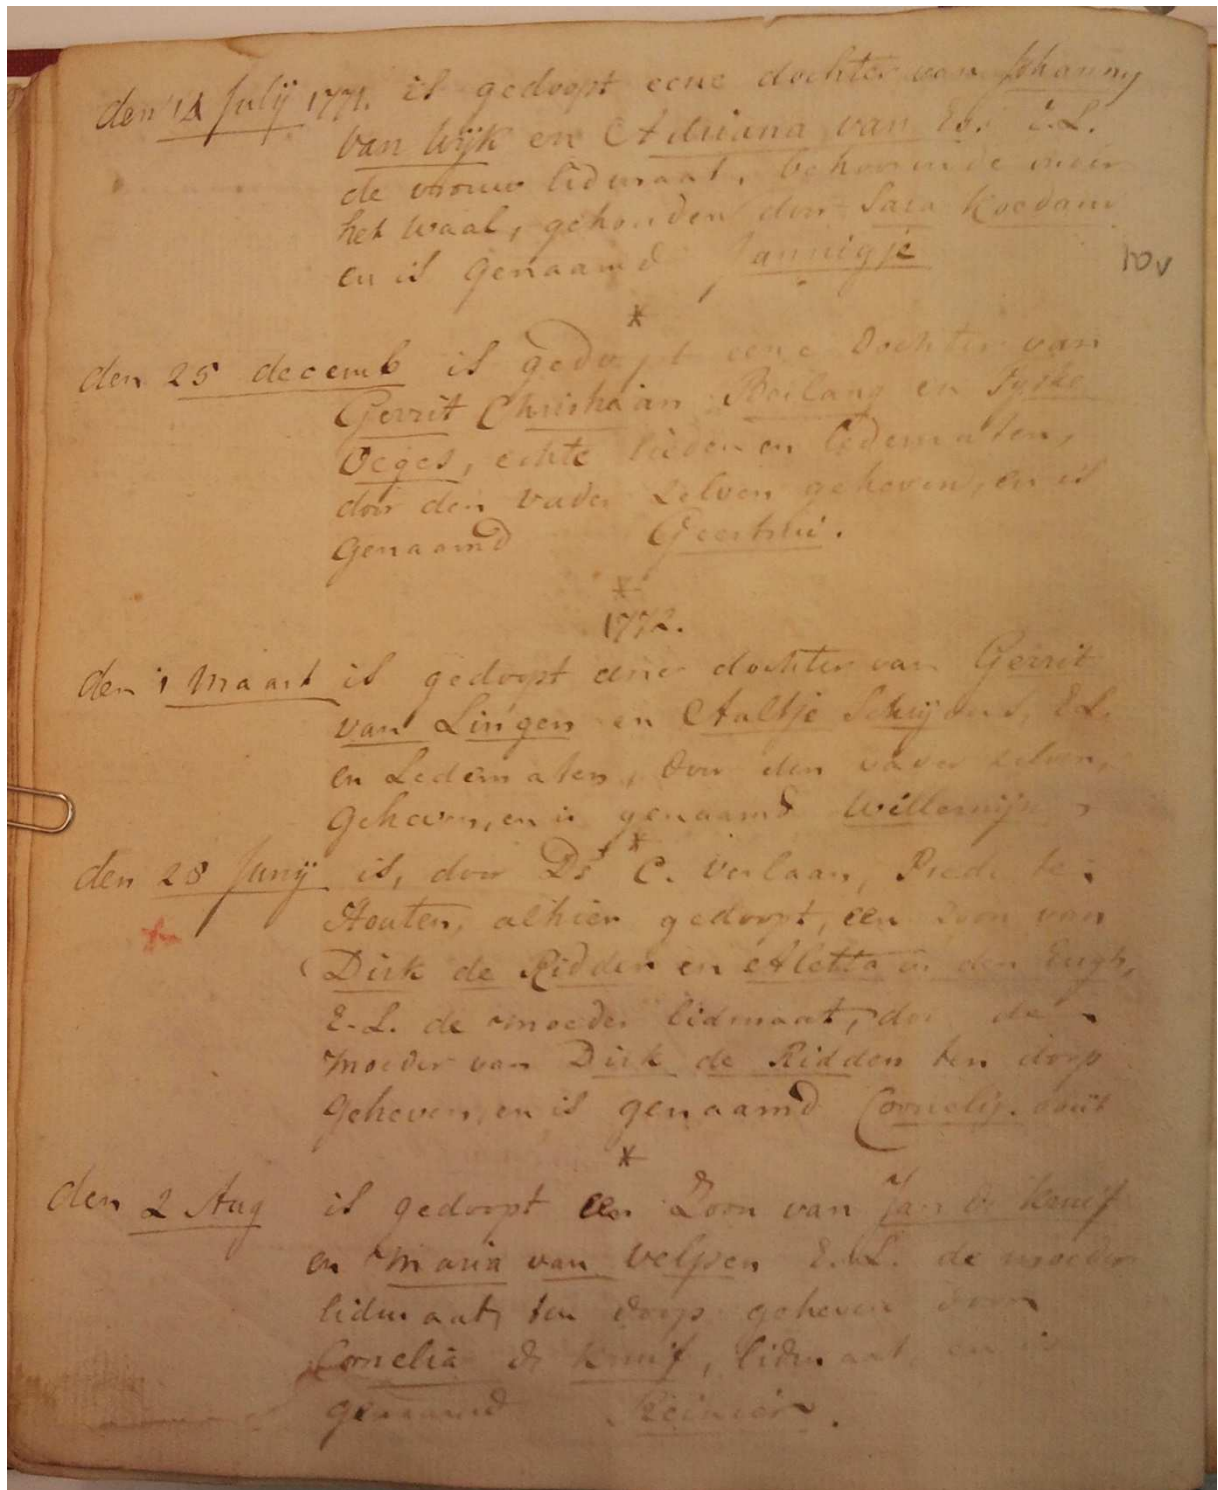 den 14 Julij 1771. is gedoopt eene dochter van Johannes
van Wijk en Adriana van Es. E.L.
de vrouw lidmaat, behoorende onder
het waal, gehouden door Sara Koedam
en is genaamd Jannigje
10v
*
den 25 decemb is gedoopt eene dochter van
Gerrit Christiaan en
echte lieden en Ledematen,
door den vader zelven geheven, en is
genaamd Geertrui.
*
1772.
den 1 Maart is gedoopt eene dochter van Gerrit
van Lingen en Aaltje E.L.
en Ledematen, door den vader zelven,
geheven, en is genaamd Willemijn
*
den 28 Junij is, door Ds C. Verlaan, Pred. te
Houten, alhier gedoopt, een zoon van
Dirk de Ridder en Aletta in den Engh,
E.L. de moeder lidmaat, door de
moeder van Dirk de Ridder ten doop
geheven, en is genaamd Cornelis.
*
den 2 Aug is gedoopt een Zoon van Jan de Kruif
en Maria van Velpen E.L. de moeder
lidmaat, ten doop geheven door
Cornelia de Kruif, lidmaat, en is
genaamd Reinier.